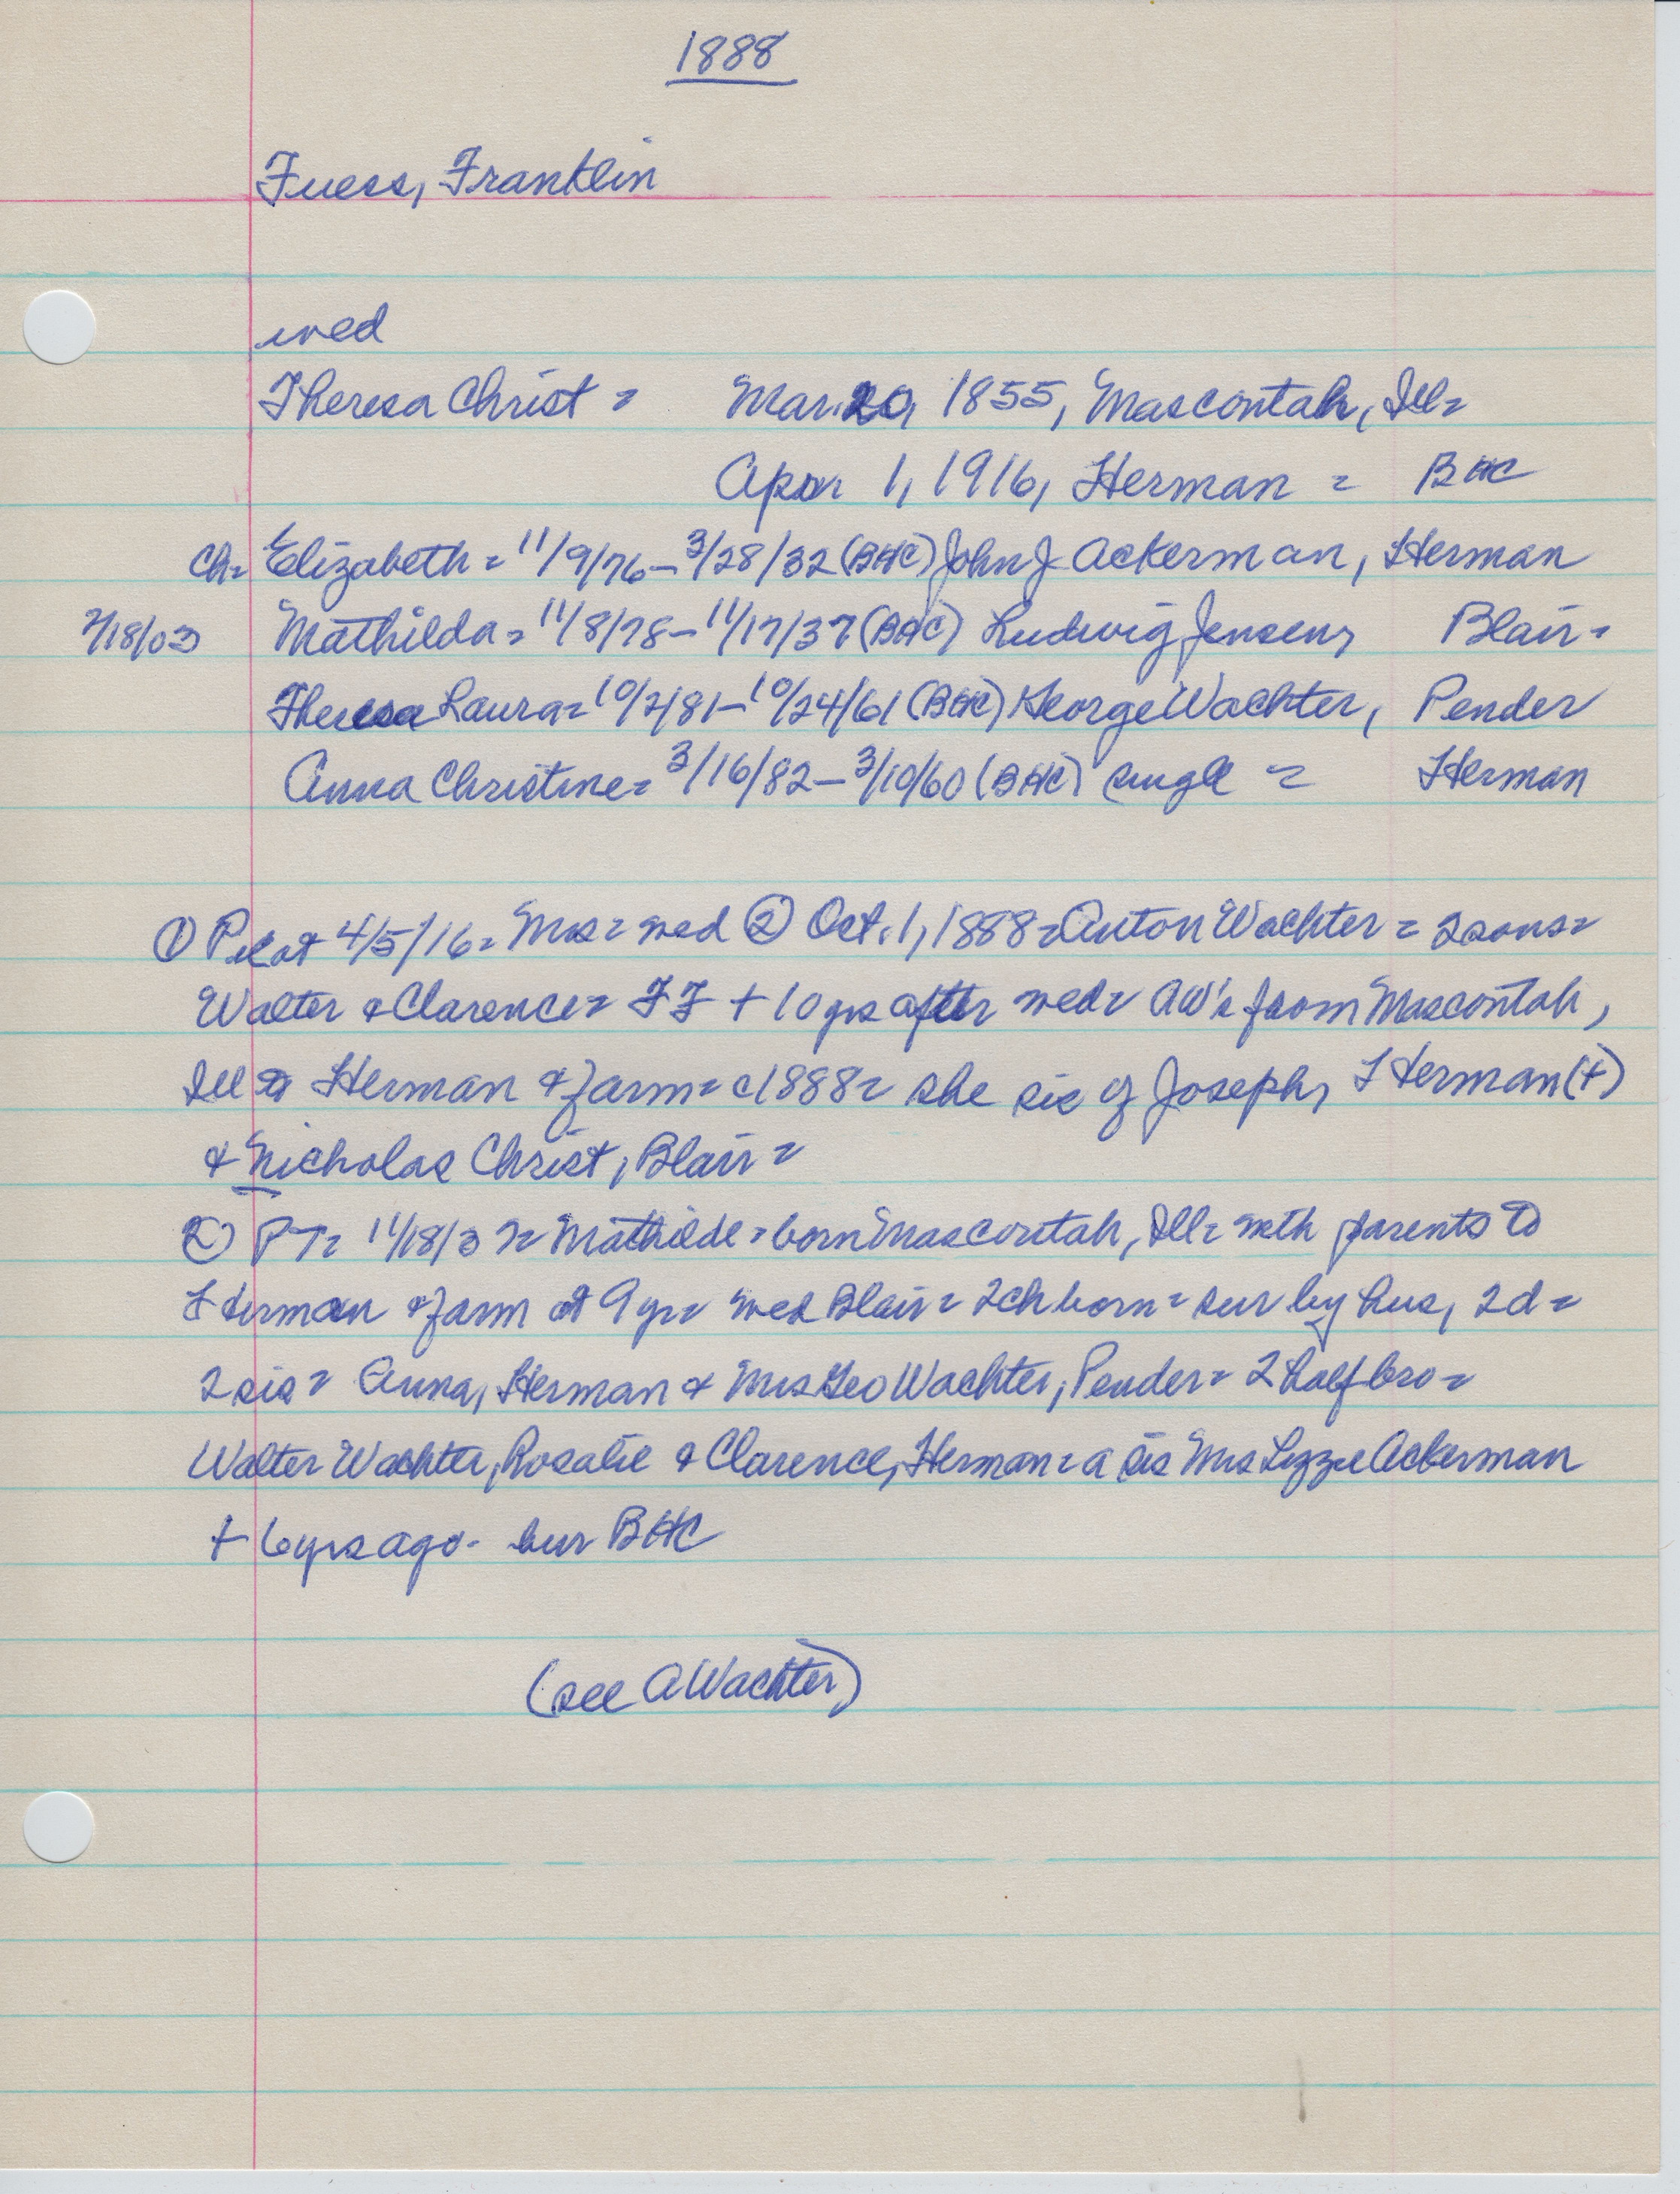 1888
Fuess, Franklin
wed
Theresa Christ = Mar. 20, 1855, Mascontah, Ill=
Apr 1, 1916, Herman = BHC
Ch= Elizabeth = 11/9/76 - 3/28/32 (BHC) John J Ackerman, Herman
2/18/03 Mathilda = 11/8/78 - 11/17/37 (BHC) Ludwig Jensen, Blair =
Theresa Laura = 10/2/81 - 10/24/61 (BHC) George Wachter, Pender
Anna Christine = 3/16/82 - 3/10/60 (BHC) single = Herman
① Pilot 4/5/16 = Mrs = wed ② Oct. 1, 1888 = Anton Wachter = 2 sons =
Walter & Clarence = FF + 10 yrs after wed = AW's from Mascontah,
Ill to Herman & farm = c1888 = she sis of Joseph, Herman (+)
& Nicholas Christ, Blair =
② PT = 11/18/37 = Mathilde = born Mascoutah, Ill = with parents to
Herman & farm at 9 yr = wed Blair = 2 ch born = sur by hus, 2 d =
2 sis = Anna, Herman & Mrs Geo Wachter, Pender = 2 half bro =
Walter Wachter, Rosalie & Clarence, Herman = a sis Mrs Lizzie Ackerman
+ 6 yrs ago - bur BHC
(see A Wachter)